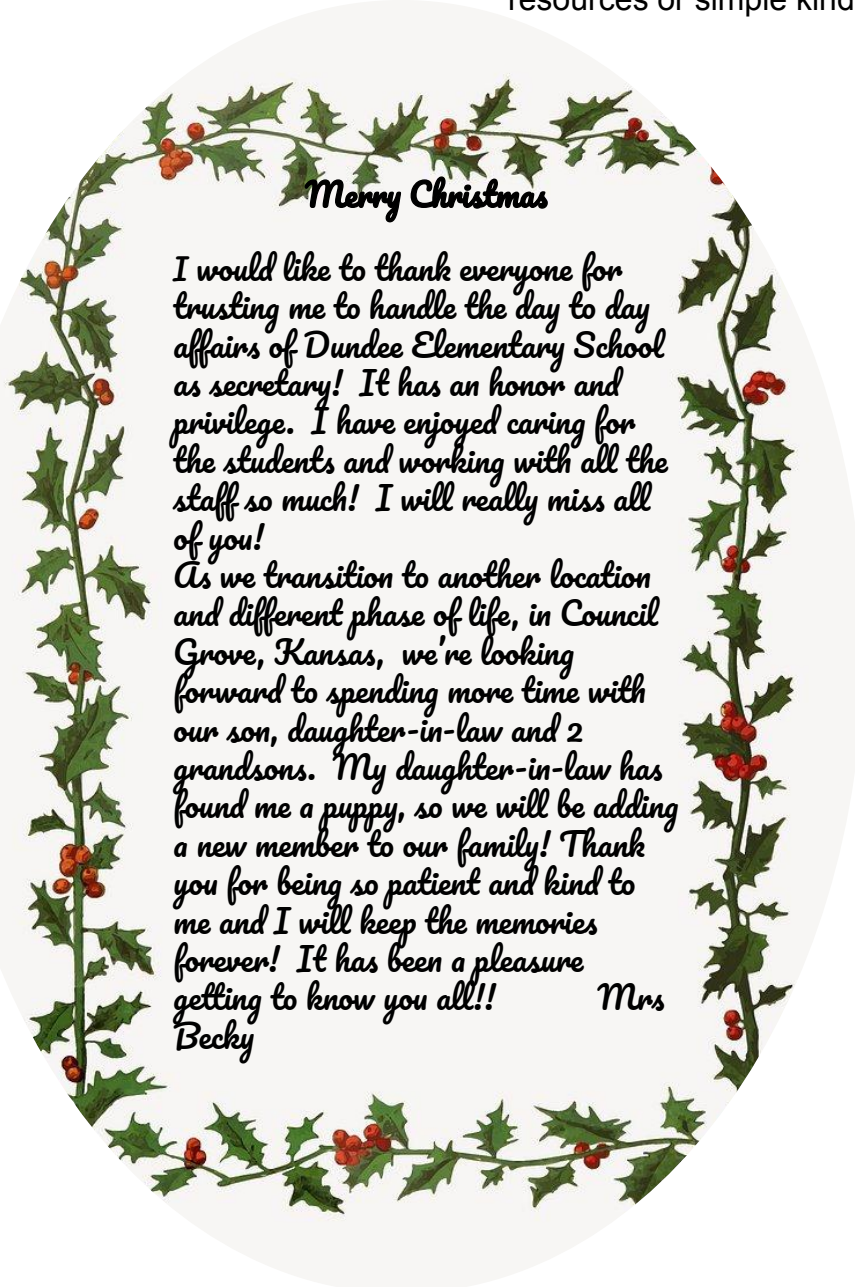 resources or simple kind
Merry Christmas
I would like to thank everyone for
trusting me to handle the day to day
affairs of Dundee Elementary School
as secretary!  It has an honor and
privilege.  I have enjoyed caring for
the students and working with all the
staff so much!  I will really miss all
of you!
As we transition to another location
and different phase of life, in Council
Grove, Kansas,  we're looking
forward to spending more time with
our son, daughter-in-law and 2
grandsons.  My daughter-in-law has
found me a puppy, so we will be adding
a new member to our family! Thank
you for being so patient and kind to
me and I will keep the memories
forever!  It has been a pleasure
getting to know you all!!          Mrs
Becky